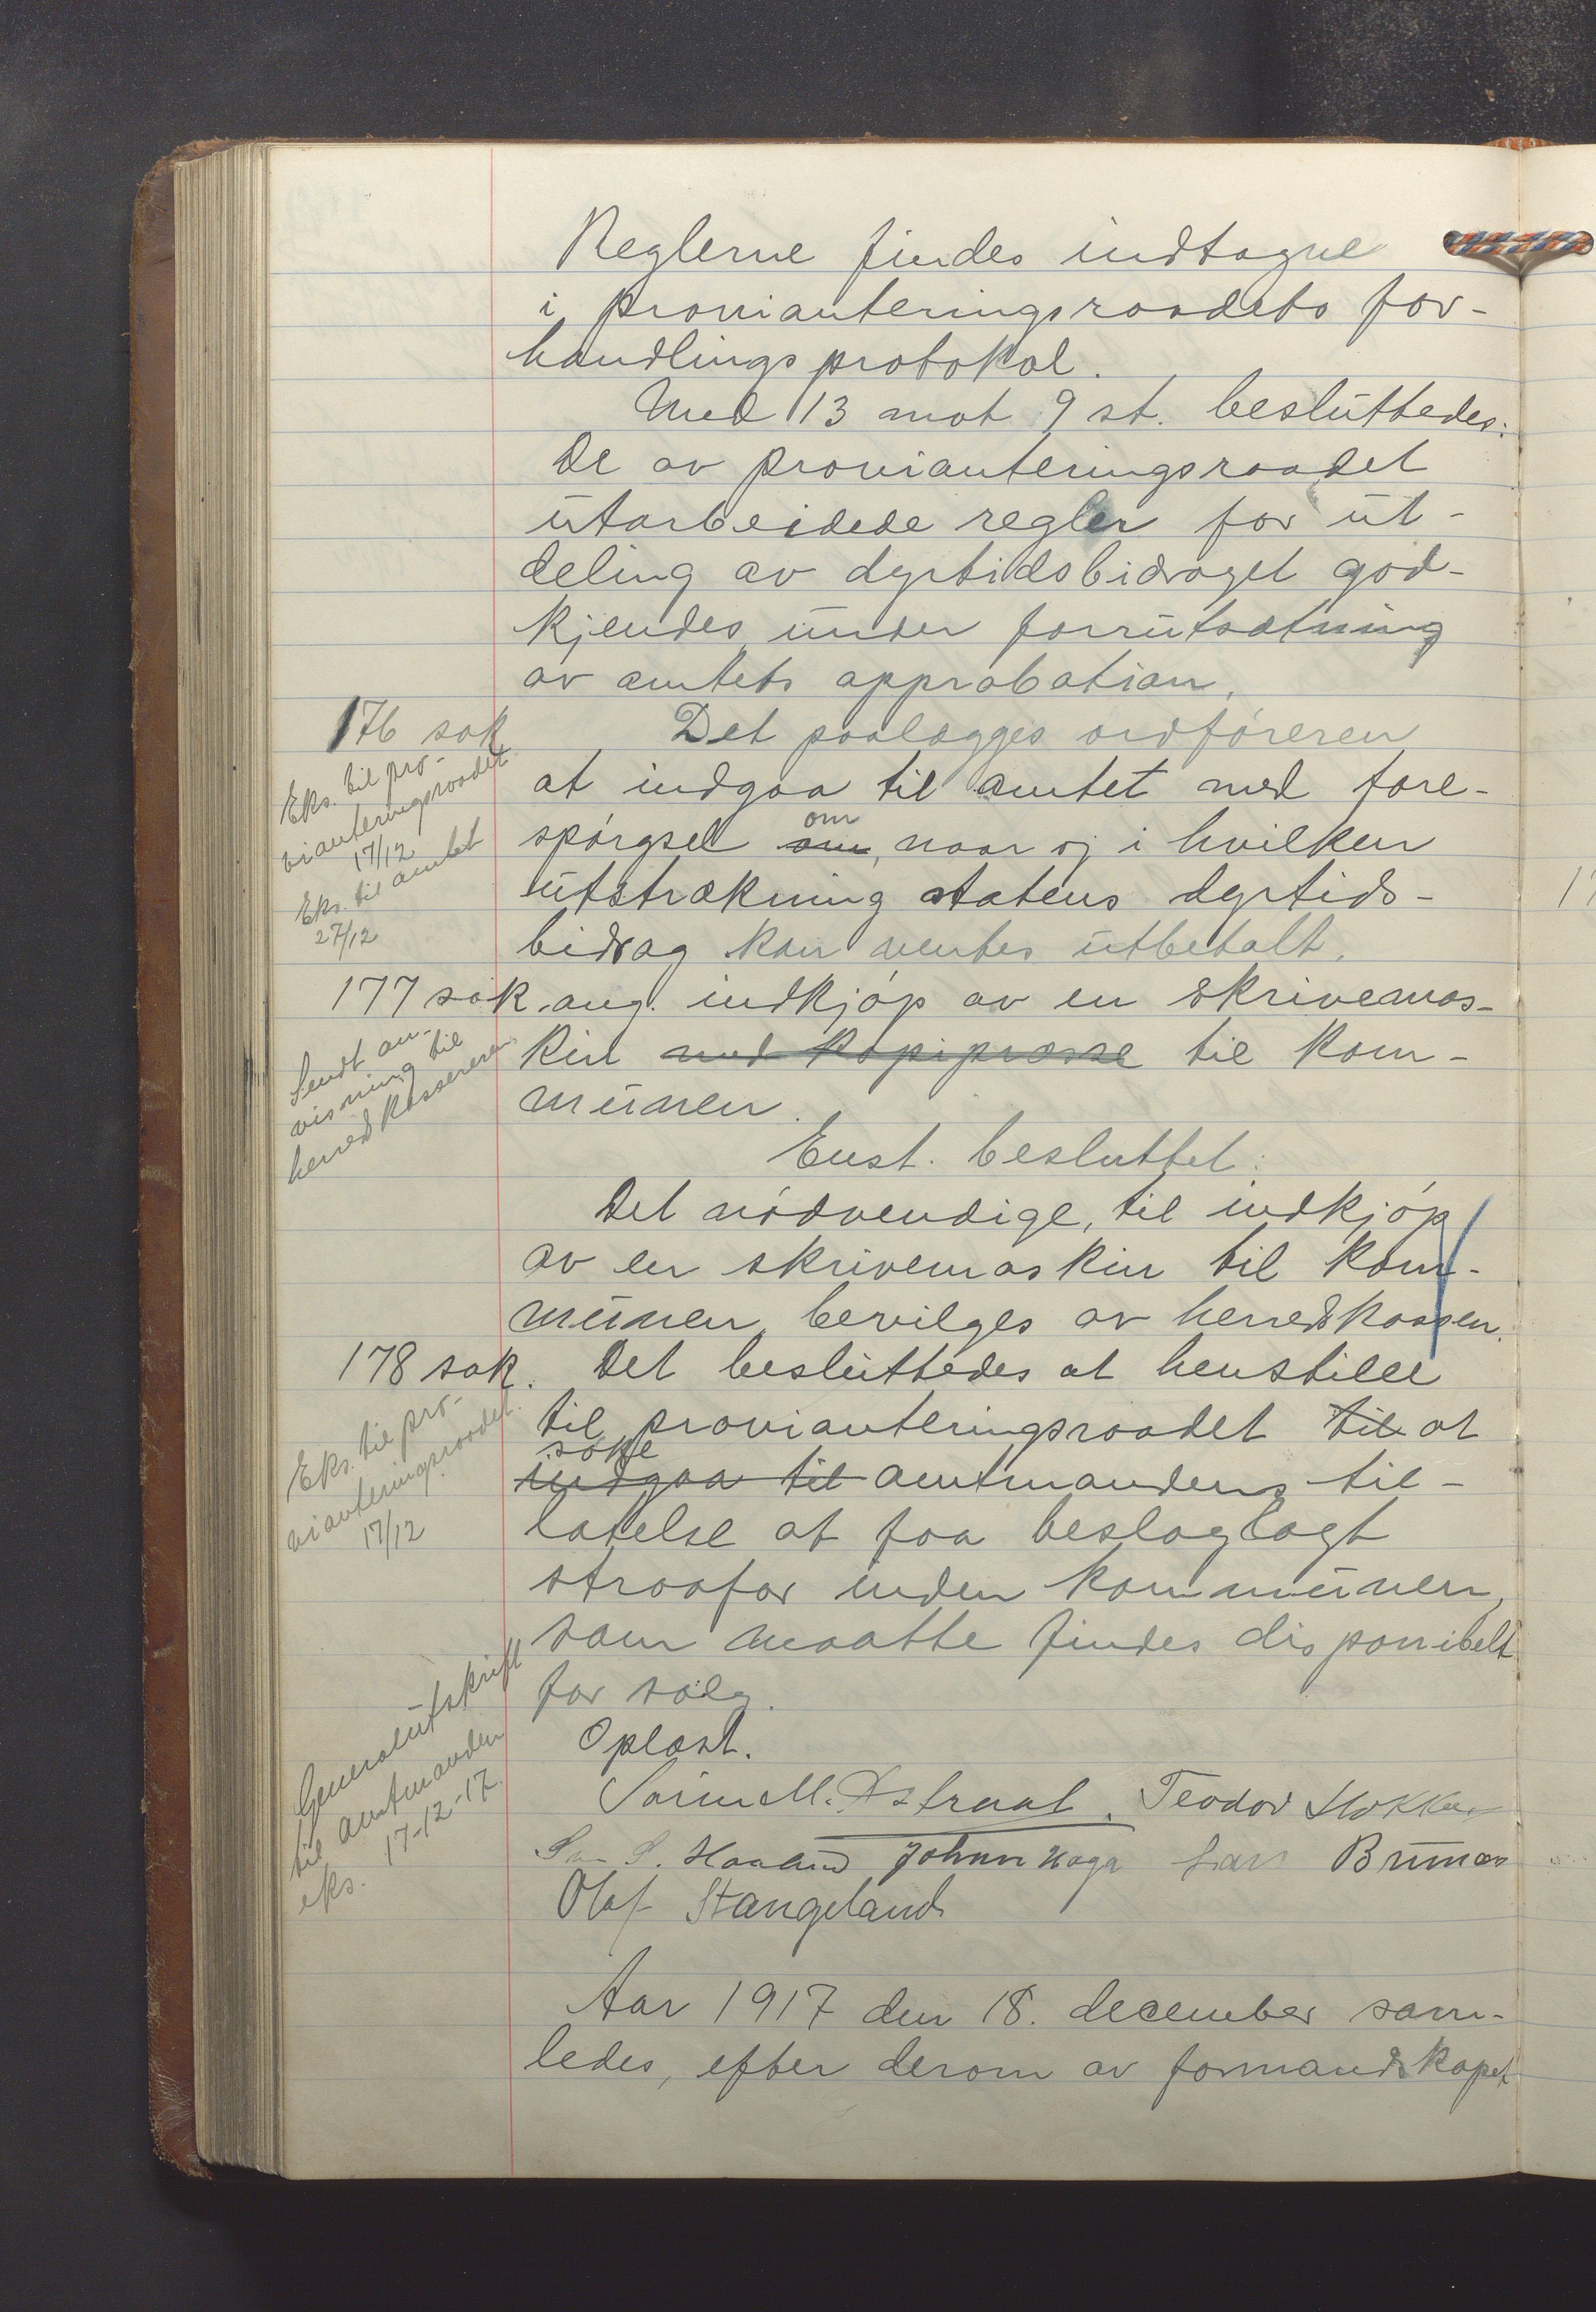 Reglerne findes indtagne
i provianteringsraadets for-
handlingsprotokol.
Med 13 mot 9 st. besluttedes:
De av provianteringsraadet
utarbeidede regler for ut-
deling av dyrtidsbidraget god-
kjendes under forrutsætning
av amtets approbation.
176 sak
Det paalægges ordføreren
Eks. til pro-
vianteringsraadet
17/12
Eks. til amtet
27/12
at indgaa til amtet med fore-
spørgsel om om, naar og i hvilken
utstrækning statens dyrtids-
bidrag kan ventes utbetalt.
177 sak. ang. indkjøp av en skrivemas-
Sendt an-
visning til
herredskassereren.
kin med kopipresse til kom-
munen.
Enst. besluttet:
Det nødvendige, til indkjøp
av en skrivemaskin til kom-
munen, bevilges av herredskassen.
178 sak. Det besluttedes at henstille
Eks. til pro-
vianteringsraadet.
17/12
til provianteringsraadet til at
søke
indgaa til amtmandens til-
latelse at faa beslaglagt
straafor inden kommunen,
som maatte findes disponibelt
for salg.
Generalutskrift
til amtmanden
eks. 17-12-17.
Oplæst.
M. Teodor
S. Haaland Johan Haga Lars
Olaf Stangeland
Aar 1917 den 18. december sam-
ledes, efter derom av formandskapet